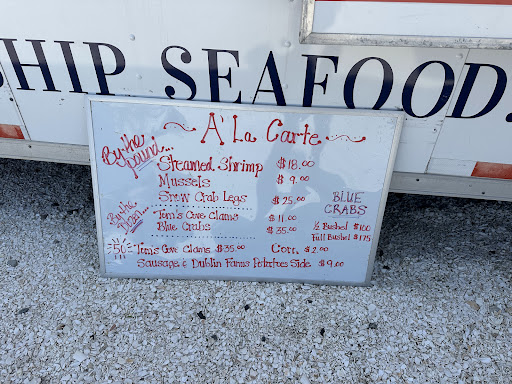 HIP SEAFOOD.
~ A' La Carte ~
By the pound...
Steamed Shrimp $18.00
Mussels $9.00
Snow Crab Legs $25.00
By the Dozen...
Tom's Cove Clams $11.00
Blue Crabs $35.00
BLUE CRABS
½ Bushel $100
Full Bushel $175
50 Tom's Cove Clams $35.00 Corn $2.00
Sausage & Dublin Farms Potatoes Side $9.00